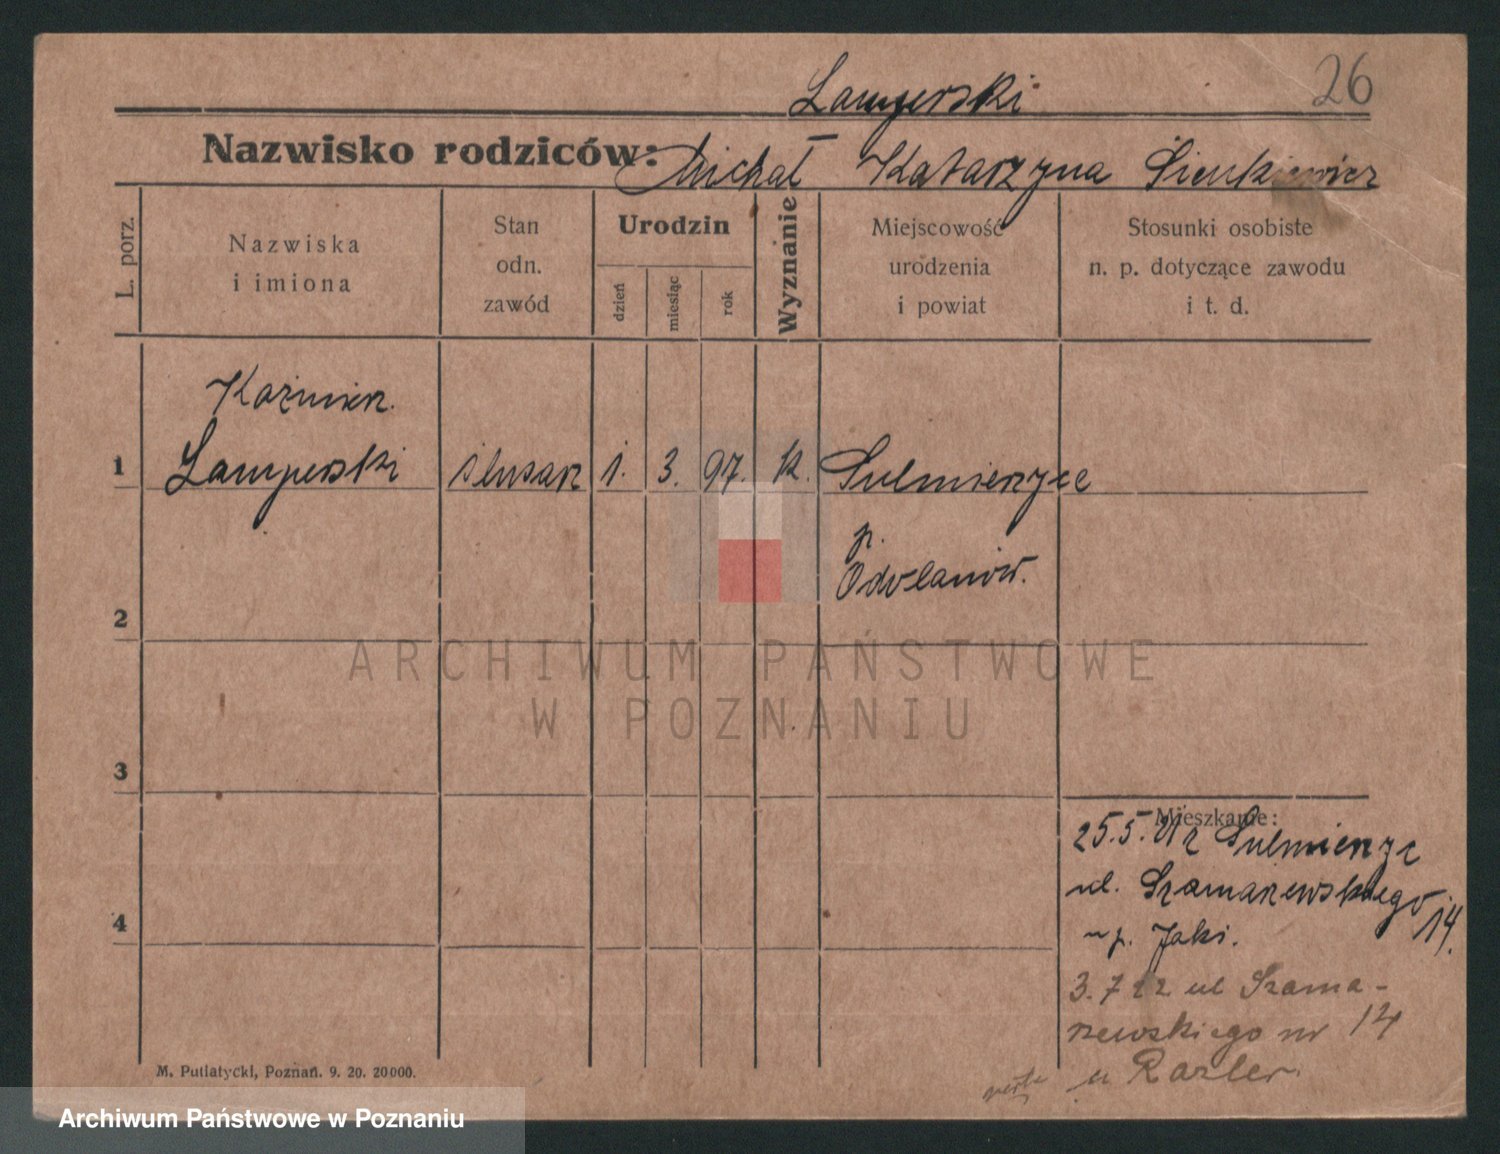 26
Lamperski
Nazwisko rodziców: Michał Katarzyna Sienkiewicz
L. porz.
Nazwiska
i imiona
Stan
odn.
zawód
Urodzin
dzień
miesiąc
rok
Wyznanie
Miejscowość
urodzenia
i powiat
Stosunki osobiste
n. p. dotyczące zawodu
i t. d.
Kaźmierz.
1 Lamperski ślusarz 1. 3. 97. k. Sulmierzyce
p.
Odolanów.
2
3
4
Mieszkanie:
25.5. z Sulmierzyc
ul. Szamarzewskiego 14.
u p. Jaki.
3.7 22 ul Szama-
rzewskiego nr 14
u
M. Putiatycki, Poznań. 9. 20. 20000.
ARCHIWUM PAŃSTWOWE
W POZNANIU
Archiwum Państwowe w Poznaniu